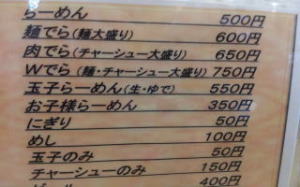 らーめん 500円
麺でら(麺大盛り) 600円
肉でら(チャーシュー大盛り) 650円
Wでら(麺・チャーシュー大盛り) 750円
玉子らーめん(生・ゆで) 550円
お子様らーめん 350円
にぎり 50円
めし 100円
玉子のみ 50円
チャーシューのみ 150円
ビール 400円